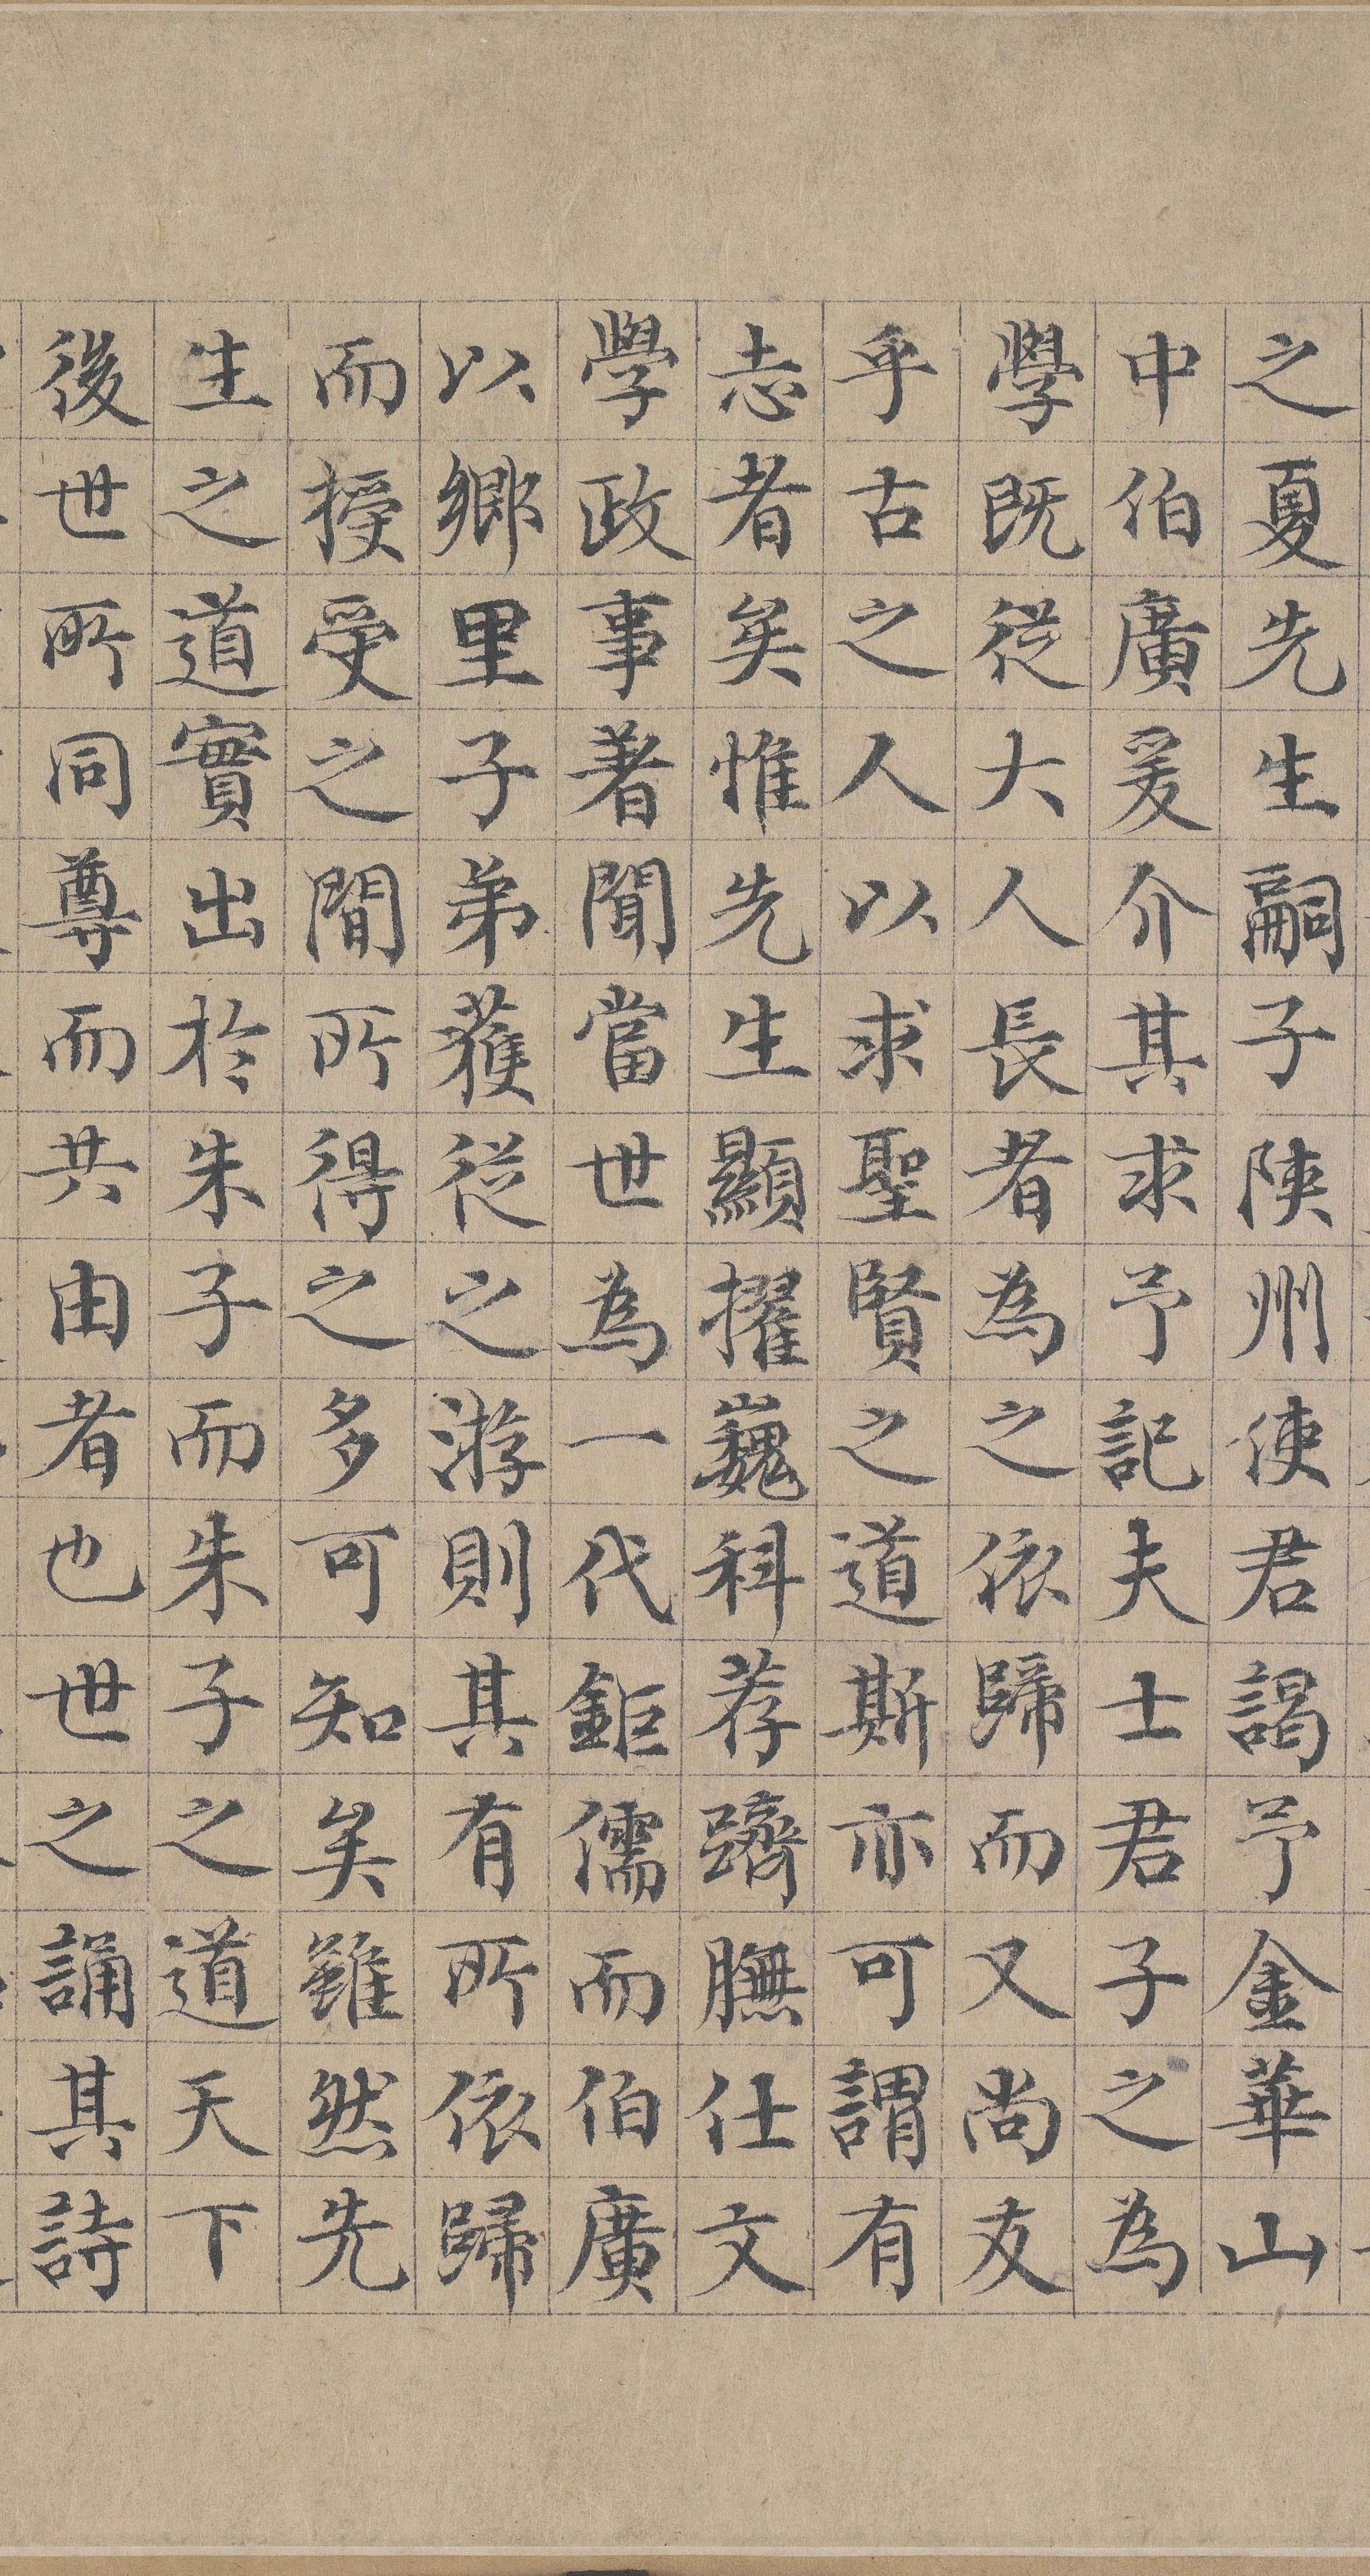 之夏先生嗣子陝州使君謁予金華山
中伯廣爰介其求予記夫士君子之為
學既從大人長者為之依歸而又尚友
乎古之人以求聖賢之道斯亦可謂有
志者矣惟先生顯擢巍科荐躋膴仕文
學政事著聞當世為一代鉅儒而伯廣
以鄉里子弟獲從之游則其有所依歸
而授受之間所得之多可知矣雖然先
生之道實出於朱子而朱子之道天下
後世所同尊而共由者也世之誦其詩